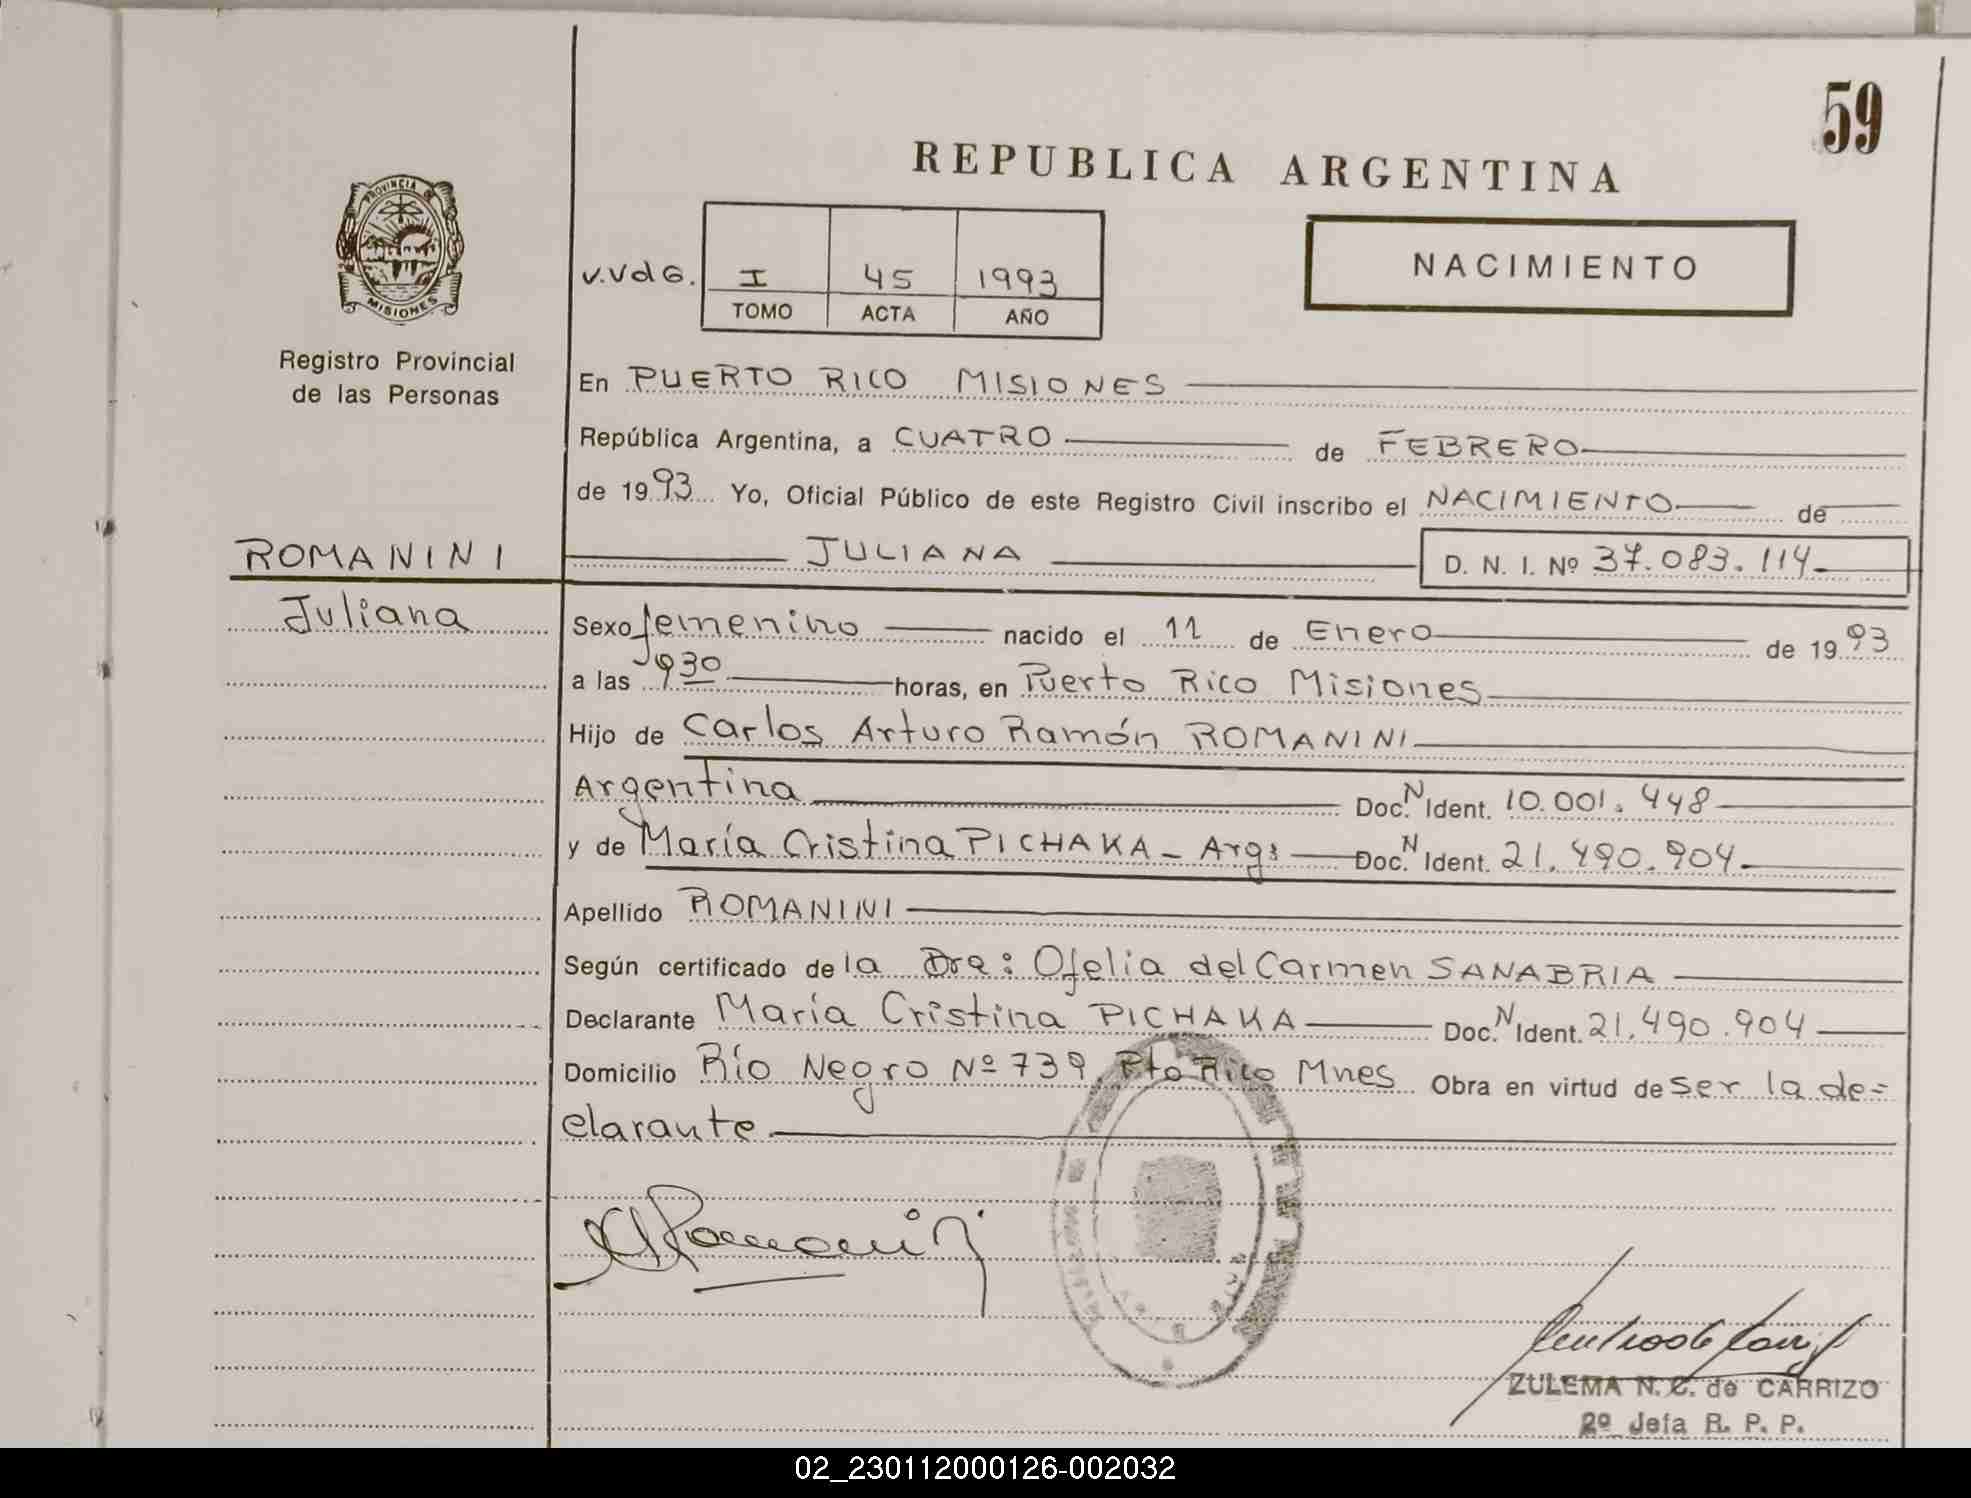 59
REPUBLICA ARGENTINA
PROVINCIA DE
MISIONES
Registro Provincial
de las Personas
V.VdG.
I 45 1993
TOMO ACTA AÑO
NACIMIENTO
En PUERTO RICO MISIONES
República Argentina, a CUATRO de FEBRERO
de 1993 Yo, Oficial Público de este Registro Civil inscribo el NACIMIENTO de
ROMANINI JULIANA D. N. I. Nº 37.083.114
Juliana
Sexo femenino nacido el 11 de Enero de 1993
a las 930 horas, en Puerto Rico Misiones
Hijo de Carlos Arturo Ramón ROMANINI
Argentina Doc. N Ident. 10.001.448
y de María Cristina PICHAKA - Arg: Doc. N Ident. 21.490.904
Apellido ROMANINI
Según certificado de la Dra: Ofelia del Carmen SANABRIA
Declarante María Cristina PICHAKA Doc. N Ident. 21.490.904
Domicilio Río Negro Nº 739 Pto Rico Mnes Obra en virtud de ser la de=
clarante
ZULEMA N. C. de CARRIZO
2º Jefa R. P. P.
02_230112000126-002032